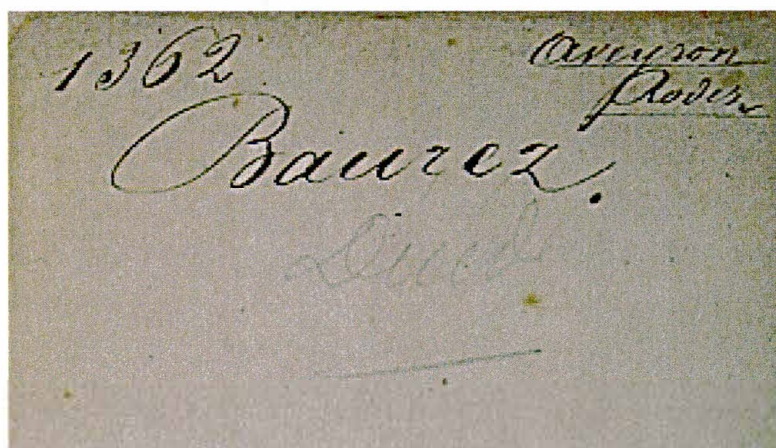 1362
Aveyron
Rodez
Baurez.